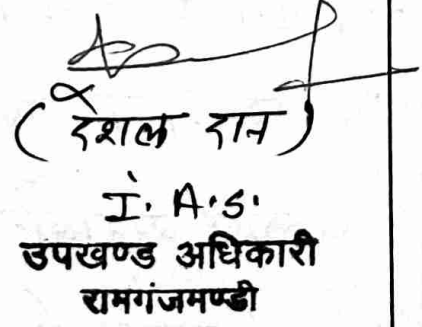 (देशल दान)
I. A.S.
उपखण्ड अधिकारी
रामगंजमण्डी